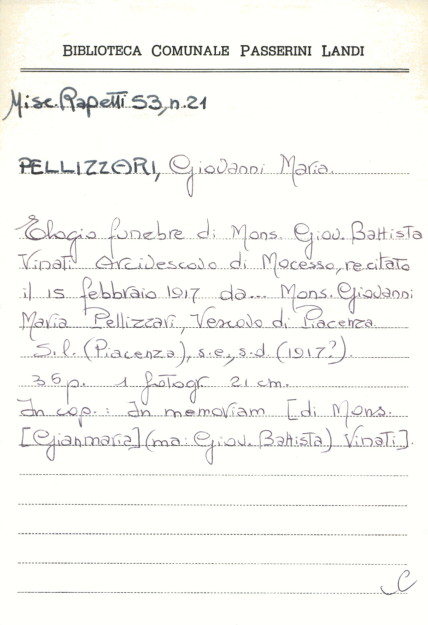 BIBLIOTECA COMUNALE PASSERINI LANDI
Misc. Rapetti 53, n.21
PELLIZZARI, Giovanni Maria.
Elogio funebre di Mons. Giov. Battista
Vinati Arcivescovo di Mocesso, recitato
il 15 febbraio 1917 da... Mons. Giovanni
Maria Pellizzari, Vescovo di Piacenza.
S.l. (Piacenza), s.e., s.d. (1917?).
35 p. 1 fotogr. 21 cm.
In cop.: In memoriam [di Mons.
[Gianmaria] (ma: Giov. Battista) Vinati].